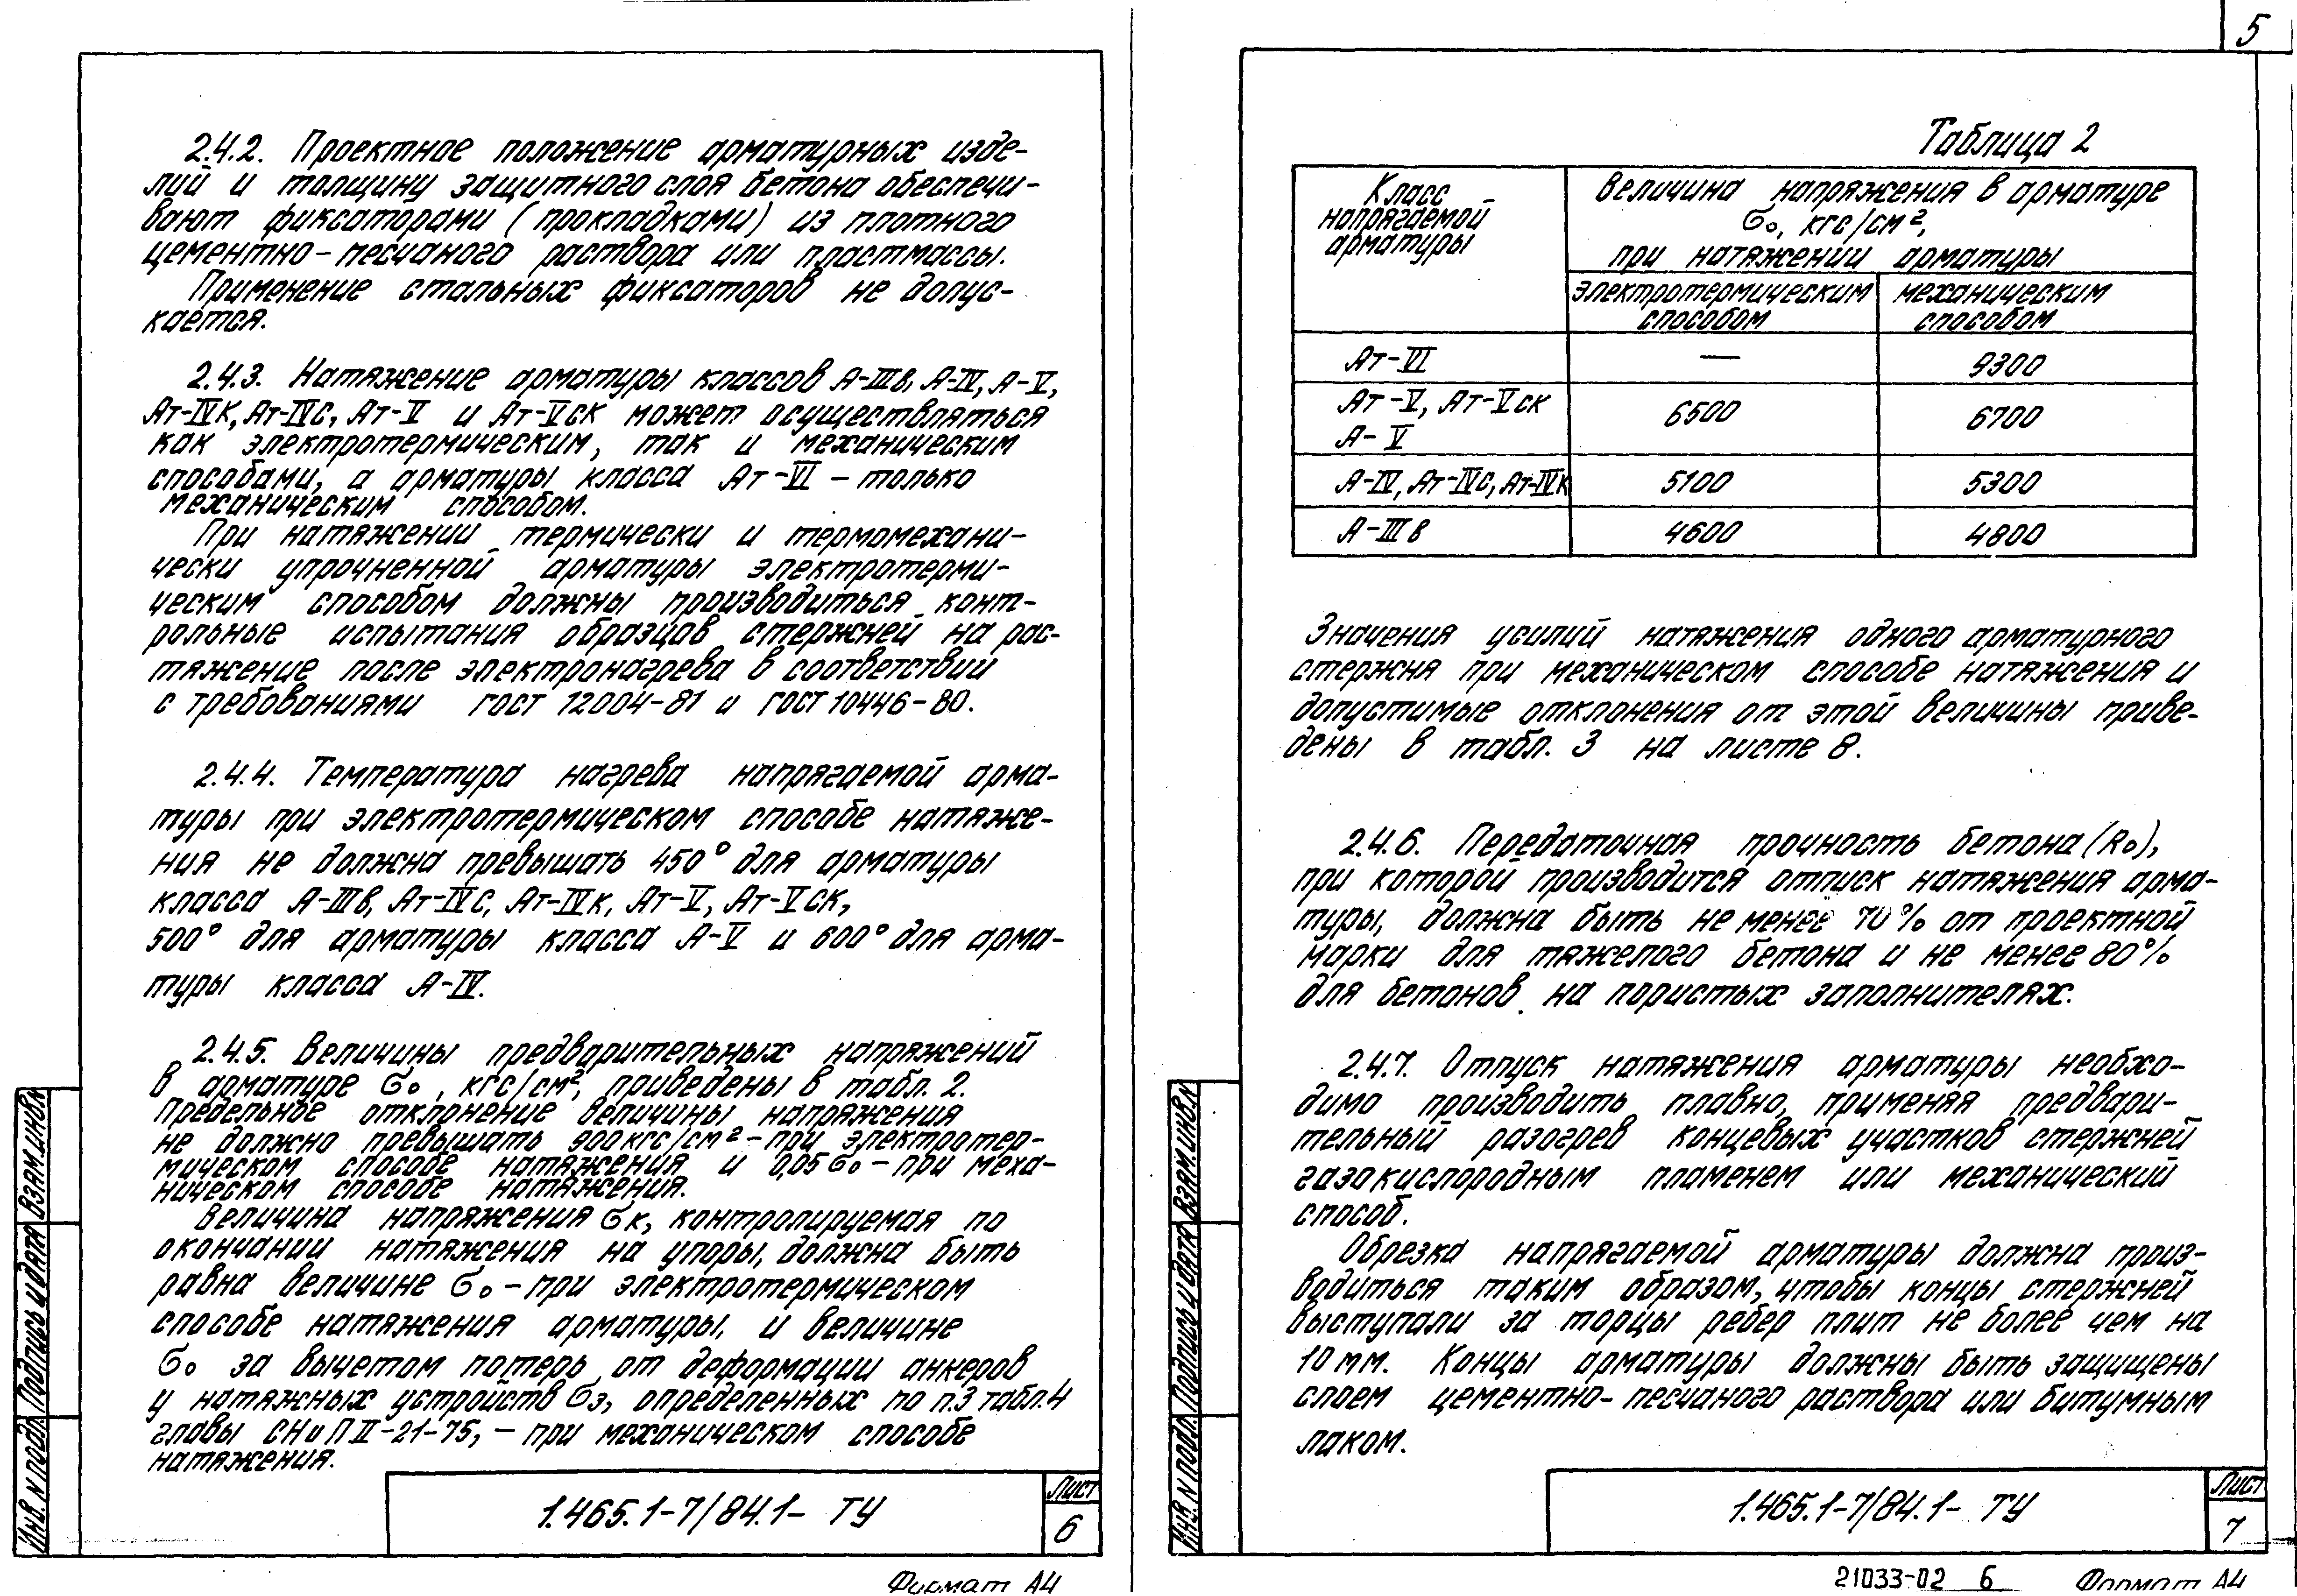 5
2.4.2. Проектное положение арматурных изде-
лий и толщину защитного слоя бетона обеспечи-
вают фиксаторами (прокладками) из плотного
цементно-песчаного раствора или пластмассы.
Применение стальных фиксаторов не допус-
кается.
2.4.3. Натяжение арматуры классов А-IIIв, А-IV, А-V,
Ат-IVК, Ат-IVС, Ат-V и Ат-VСК может осуществляться
как электротермическим, так и механическим
способами, а арматуры класса Ат-VI - только
механическим способом.
При натяжении термически и термомехани-
чески упрочненной арматуры электротерми-
ческим способом должны производиться конт-
рольные испытания образцов стержней на рас-
тяжение после электронагрева в соответствии
с требованиями ГОСТ 12004-81 и ГОСТ 10446-80.
2.4.4. Температура нагрева напрягаемой арма-
туры при электротермическом способе натяже-
ния не должна превышать 450° для арматуры
класса А-IIIв, Ат-IVС, Ат-IVК, Ат-V, Ат-VСК,
500° для арматуры класса А-V и 600° для арма-
туры класса А-IV.
2.4.5. Величины предварительных напряжений
в арматуре σо, кгс/см², приведены в табл. 2.
Предельное отклонение величины напряжения
не должно превышать 900 кгс/см² - при электротер-
мическом способе натяжения и 0,05 σо - при меха-
ническом способе натяжения.
Величина напряжения σк, контролируемая по
окончании натяжения на упоры, должна быть
равна величине σо - при электротермическом
способе натяжения арматуры, и величине
σо за вычетом потерь от деформации анкеров
у натяжных устройств σ3, определенных по п.3 табл.4
главы СНиП II-21-75, - при механическом способе
натяжения.
Инв. N подл. Подпись и дата Взам. инв. N
1.465.1-7/84.1- ТУ
Лист
6
Формат А4
Таблица 2
Класс
напрягаемой
арматуры
Величина напряжения в арматуре
σо, кгс/см²,
при натяжении арматуры
электротермическим механическим
способом способом
Ат-VI — 9300
Ат-V, Ат-VСК
А-V 6500 6700
А-IV, Ат-IVС, Ат-IVК 5100 5300
А-IIIв 4600 4800
Значения усилий натяжения одного арматурного
стержня при механическом способе натяжения и
допустимые отклонения от этой величины приве-
дены в табл. 3 на листе 8.
2.4.6. Передаточная прочность бетона (Rо),
при которой производится отпуск натяжения арма-
туры, должна быть не менее 70% от проектной
марки для тяжелого бетона и не менее 80%
для бетонов на пористых заполнителях.
2.4.7. Отпуск натяжения арматуры необхо-
димо производить плавно, применяя предвари-
тельный разогрев концевых участков стержней
газокислородным пламенем или механический
способ.
Обрезка напрягаемой арматуры должна произ-
водиться таким образом, чтобы концы стержней
выступали за торцы ребер плит не более чем на
10 мм. Концы арматуры должны быть защищены
слоем цементно-песчаного раствора или битумным
лаком.
Инв. N подл. Подпись и дата Взам. инв. N
1.465.1-7/84.1- ТУ
Лист
7
21033-02 6 Формат А4